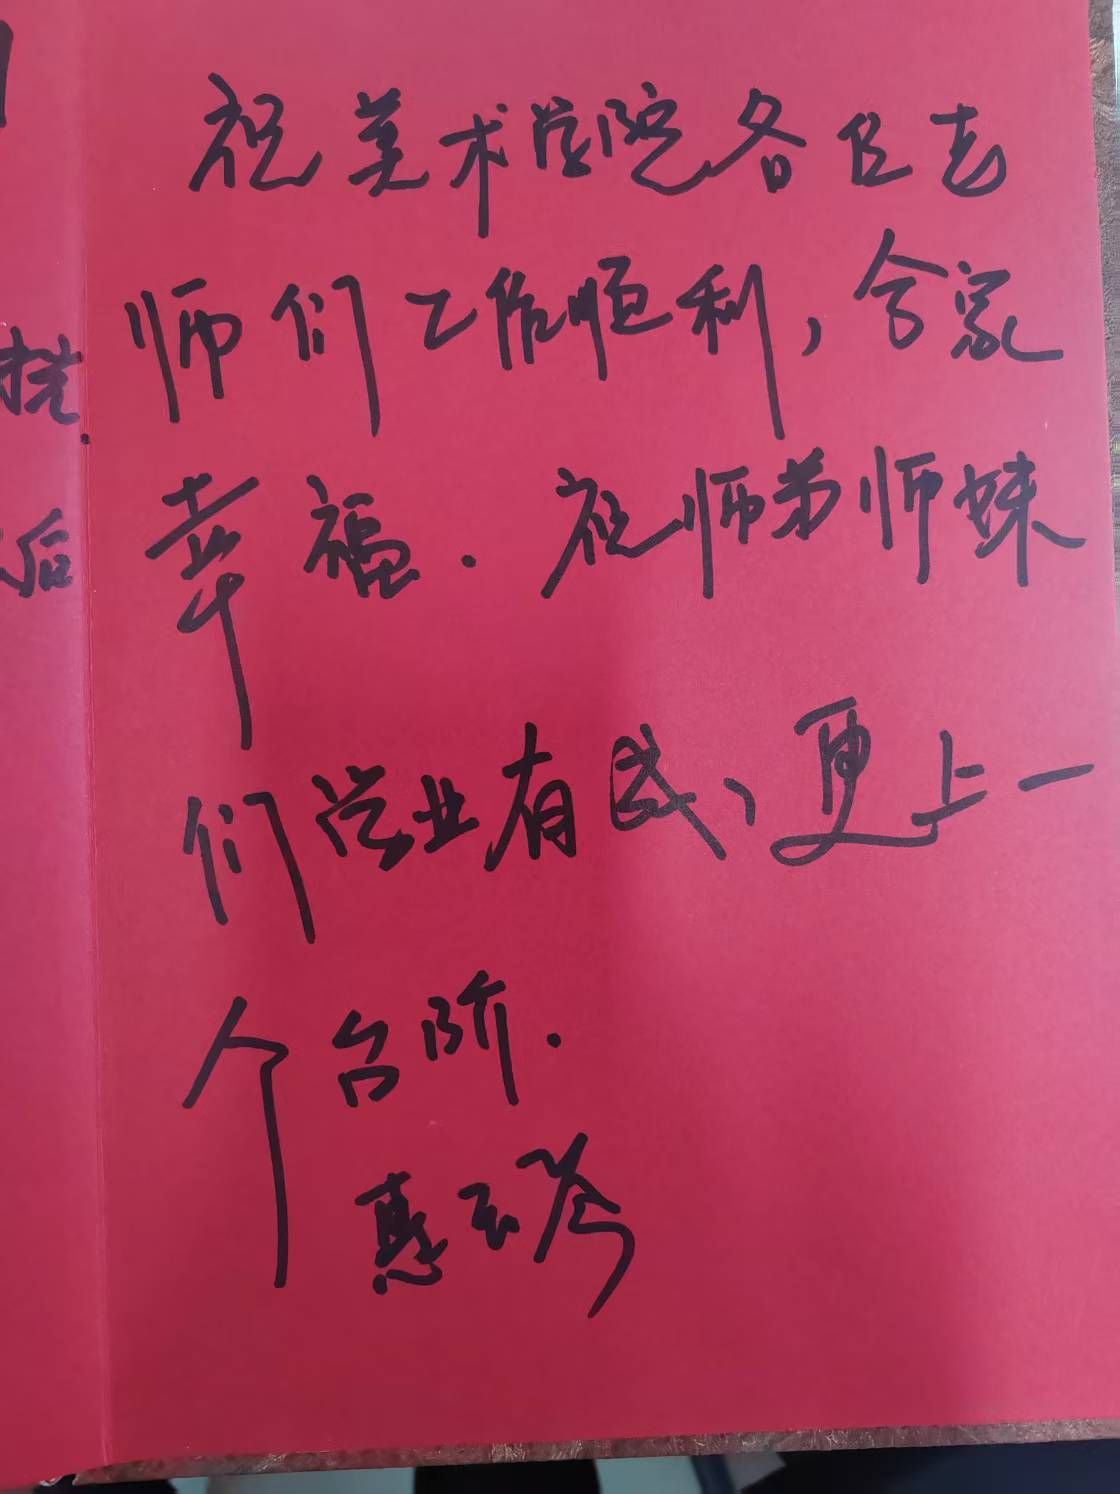 祝美术学院各位老
师们工作顺利，合家
幸福.祝师弟师妹
们学业有成、更上一
个台阶.
惠云琴
挠.
后